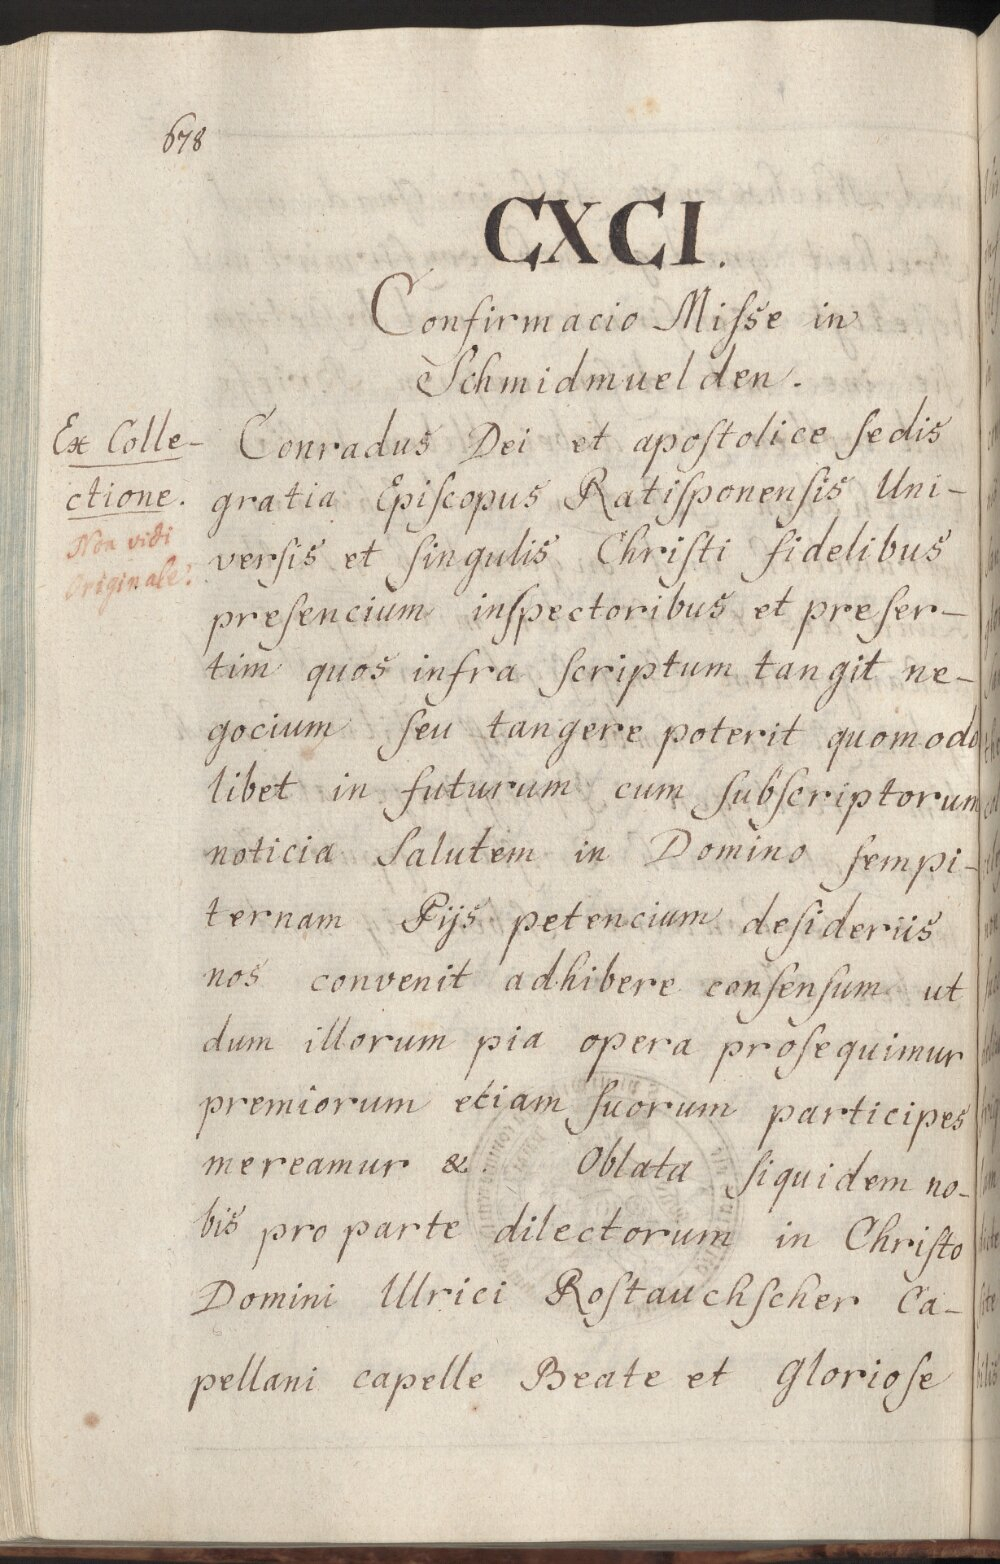 678
CXCI.
Confirmacio Misse in
Schmidmuelden.
Ex Colle-
ctione.
Non vidi
Originale.
Conradus Dei et apostolice sedis
gratia Episcopus Ratisponensis Uni-
versis et singulis Christi fidelibus
presencium inspectoribus et preser-
tim quos infra scriptum tangit ne-
gocium seu tangere poterit quomodo
libet in futurum cum subscriptorum
noticia Salutem in Domino sempi-
ternam Pijs petencium desideriis
nos convenit adhibere consensum ut
dum illorum pia opera prosequimur
premiorum etiam suorum participes
mereamur &. Oblata siquidem no-
bis pro parte dilectorum in Christo
Domini Ulrici Rostauchscher Ca-
pellani capelle Beate et Gloriose